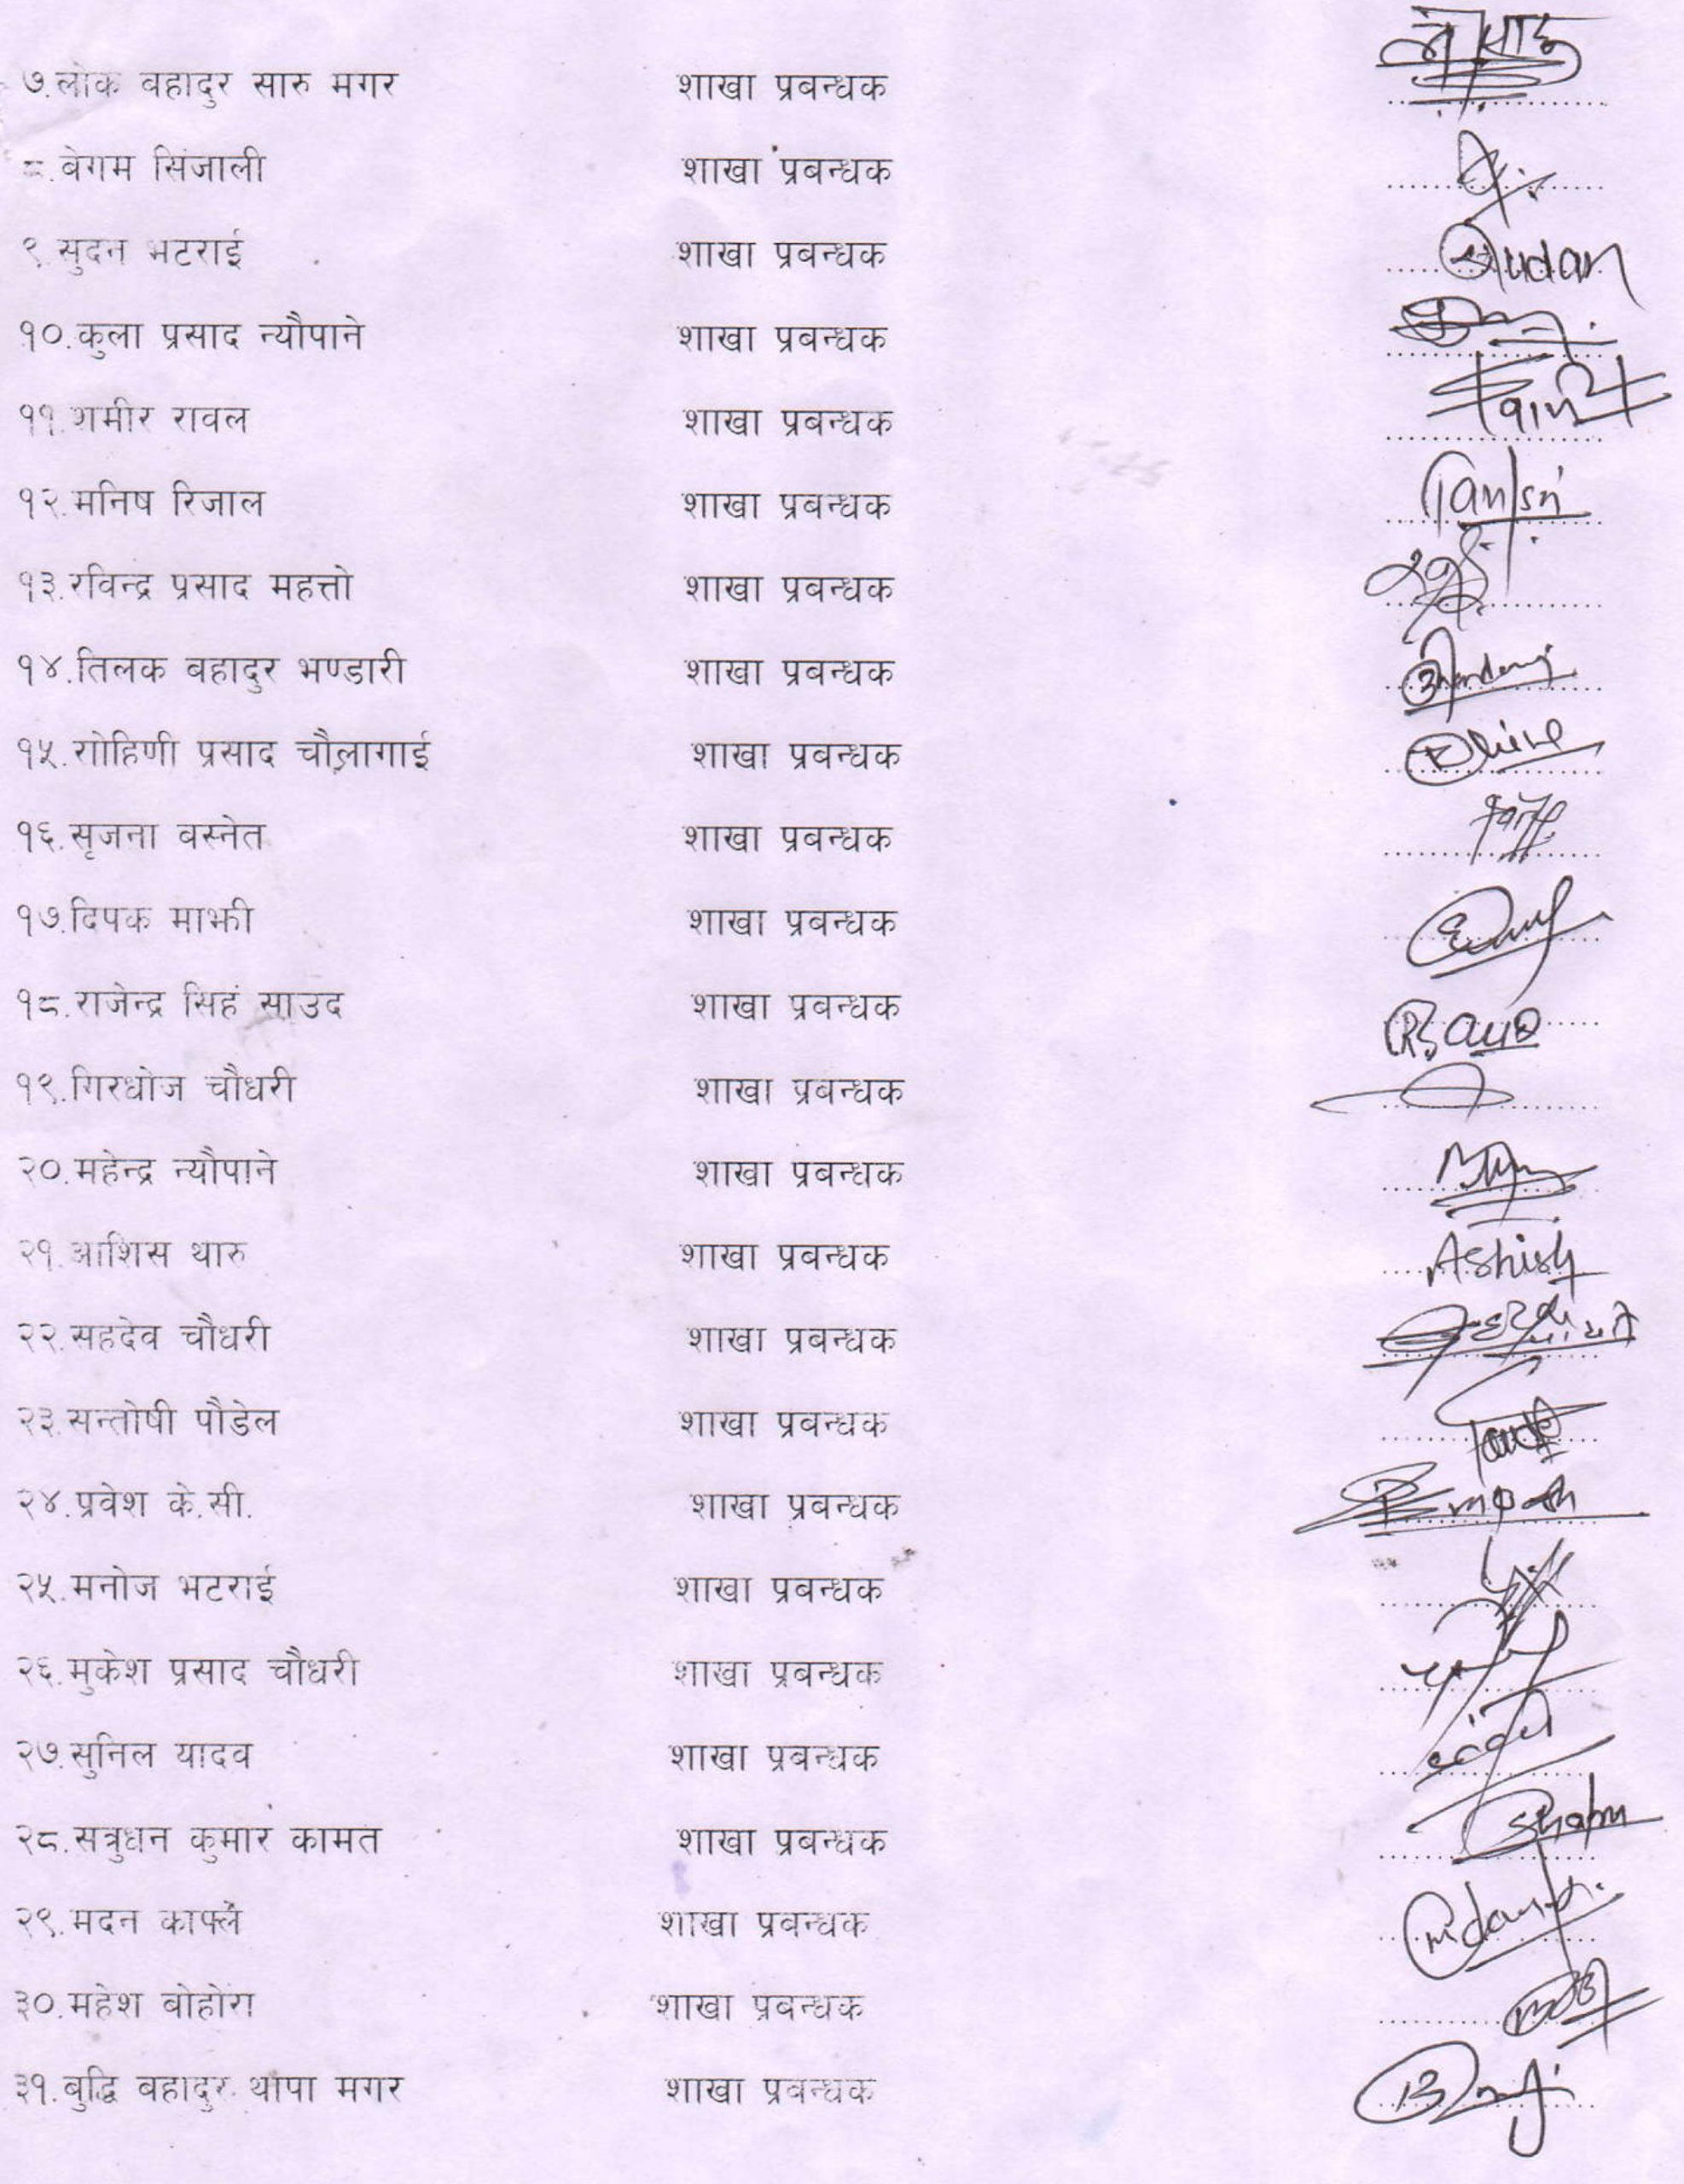 ७.लोक बहादुर सारु मगर शाखा प्रबन्धक
८.बेगम सिंजाली शाखा प्रबन्धक
९.सुदन भटराई शाखा प्रबन्धक Sudan
१०.कुला प्रसाद न्यौपाने शाखा प्रबन्धक
११.शमीर रावल शाखा प्रबन्धक
१२.मनिष रिजाल शाखा प्रबन्धक
१३.रविन्द्र प्रसाद महत्तो शाखा प्रबन्धक
१४.तिलक बहादुर भण्डारी शाखा प्रबन्धक
१५.रोहिणी प्रसाद चौलागाई शाखा प्रबन्धक
१६.सृजना वस्नेत शाखा प्रबन्धक
१७.दिपक माझी शाखा प्रबन्धक
१८.राजेन्द्र सिहं साउद शाखा प्रबन्धक
१९.गिरधोज चौधरी शाखा प्रबन्धक
२०.महेन्द्र न्यौपाने शाखा प्रबन्धक
२१.आशिस थारु शाखा प्रबन्धक Ashish
२२.सहदेव चौधरी शाखा प्रबन्धक
२३.सन्तोषी पौडेल शाखा प्रबन्धक
२४.प्रवेश के.सी. शाखा प्रबन्धक
२५.मनोज भटराई शाखा प्रबन्धक
२६.मुकेश प्रसाद चौधरी शाखा प्रबन्धक
२७.सुनिल यादव शाखा प्रबन्धक
२८.सत्रुधन कुमार कामत शाखा प्रबन्धक
२९.मदन काफ्ले शाखा प्रबन्धक
३०.महेश बोहोरा शाखा प्रबन्धक
३१.बुद्धि बहादुर थापा मगर शाखा प्रबन्धक